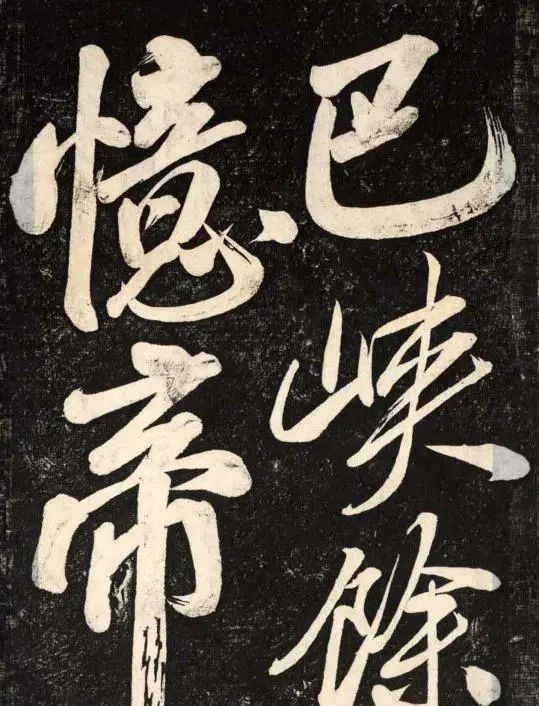 巴峽餘
憶帝